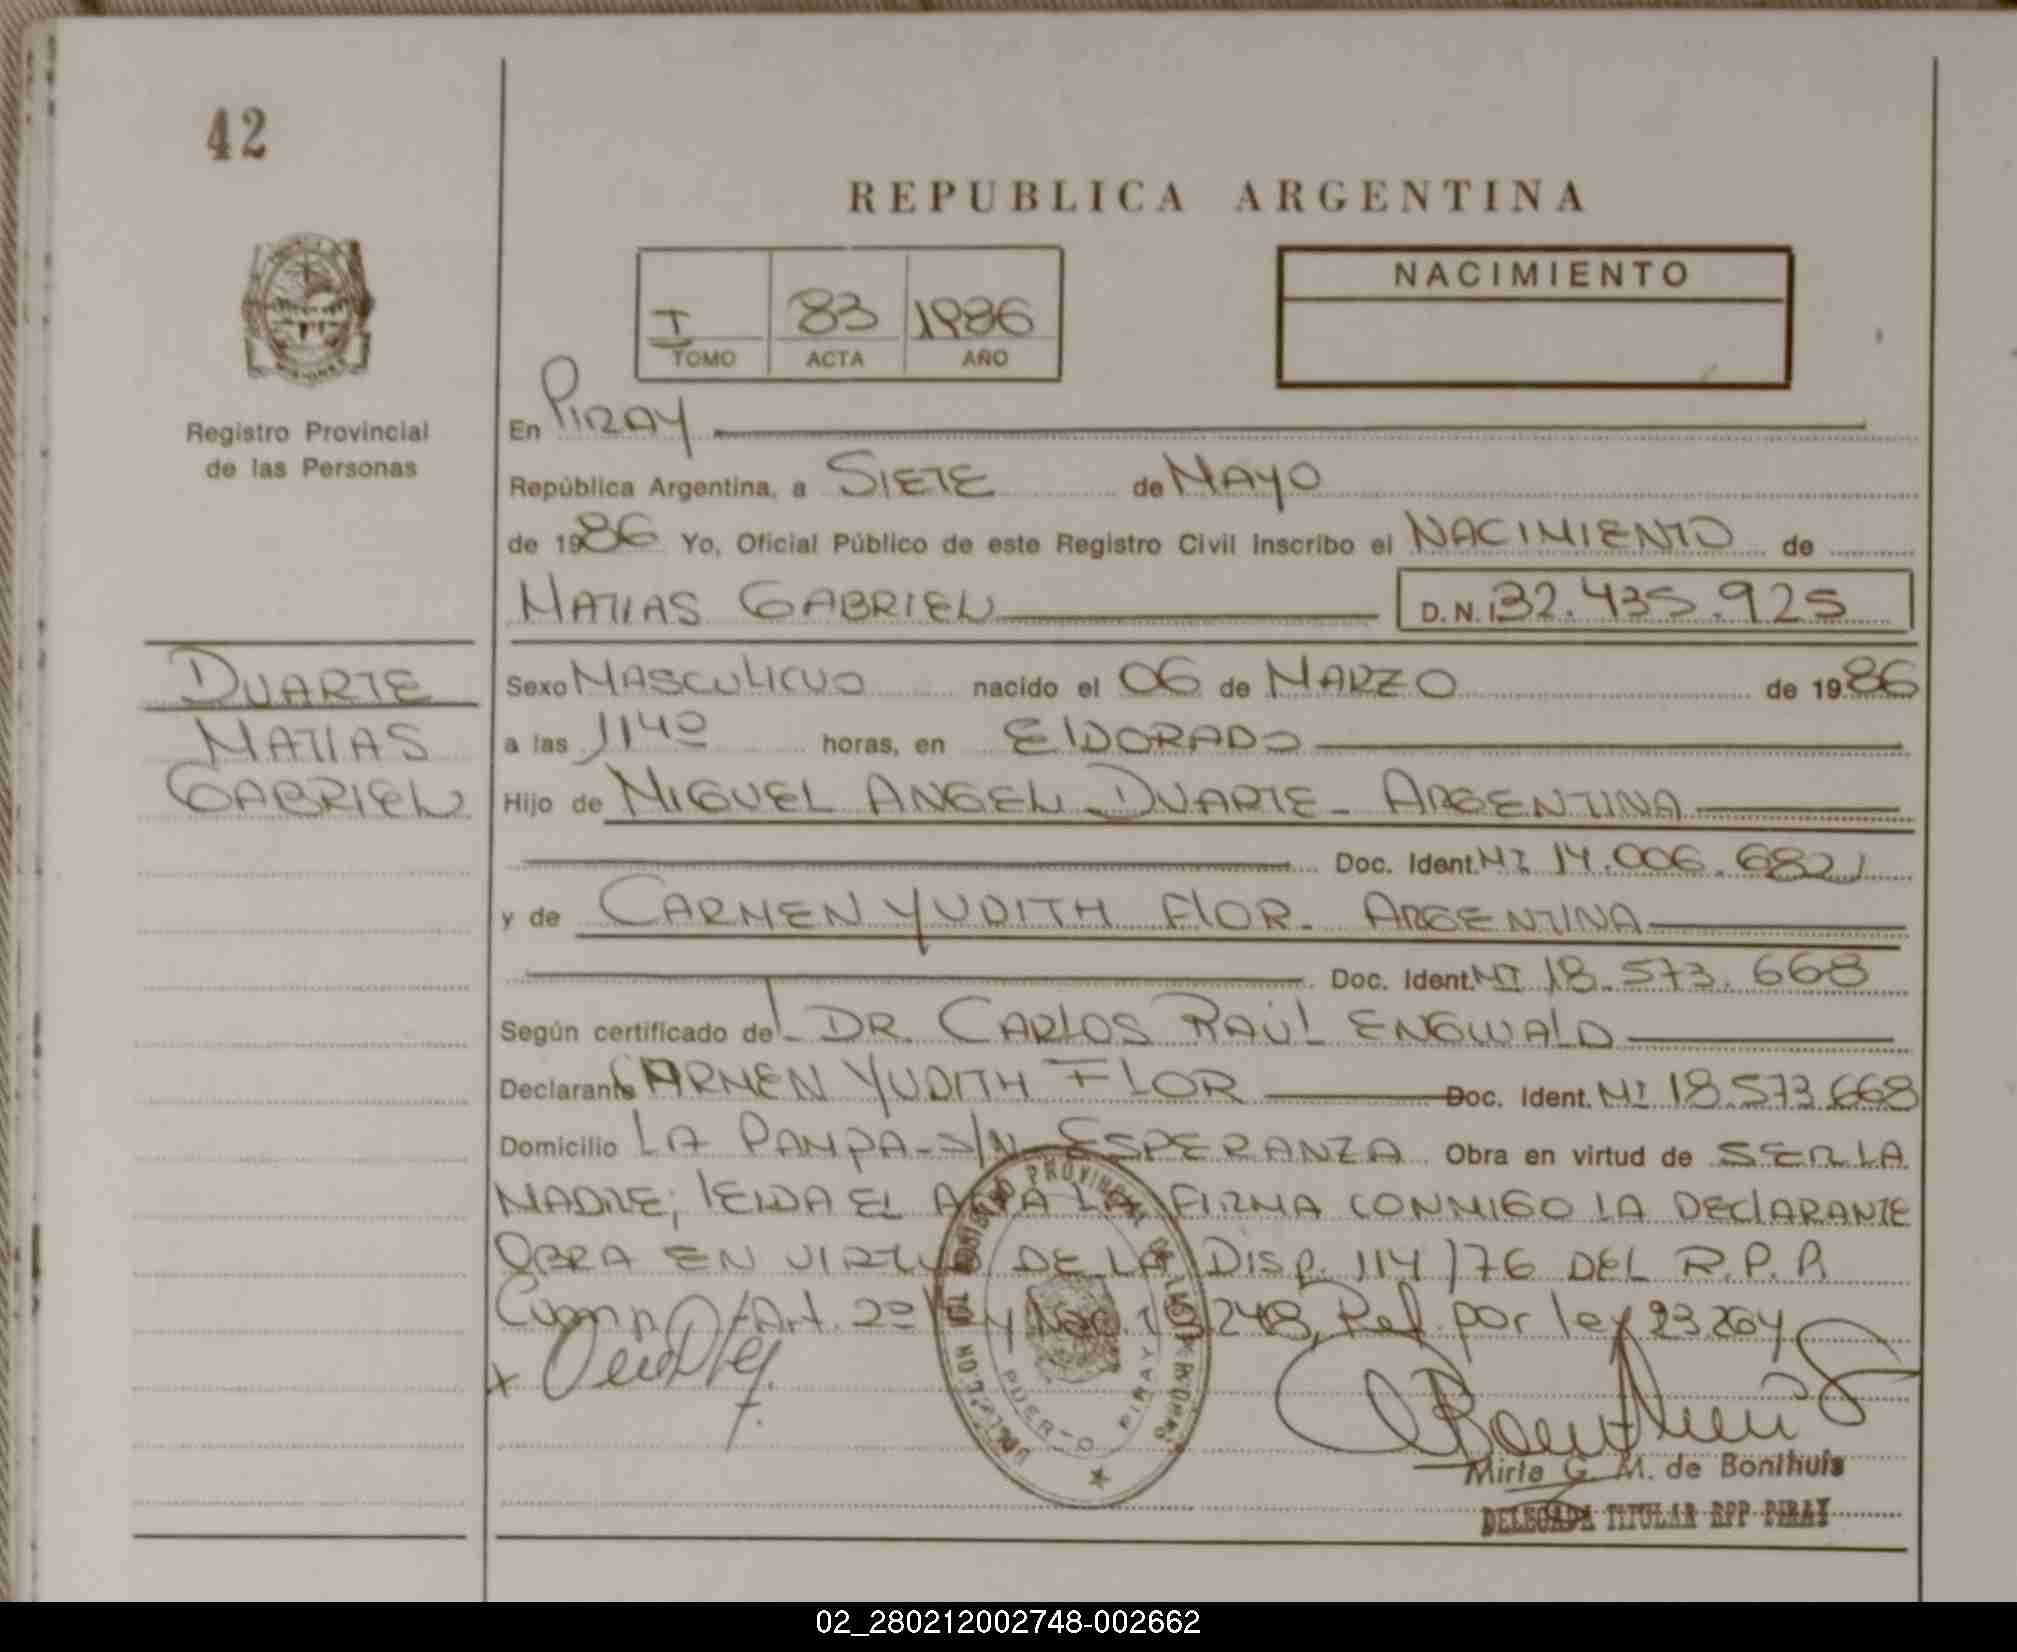 42
REPUBLICA ARGENTINA
NACIMIENTO
I 83 1986
TOMO ACTA AÑO
Registro Provincial
de las Personas
En PIRAY
República Argentina, a SIETE de MAYO
de 1986 Yo, Oficial Público de este Registro Civil inscribo el NACIMIENTO de
MATIAS GABRIEL D.N.I. 32.435.925
DUARTE
MATIAS
GABRIEL
Sexo MASCULINO nacido el 06 de MARZO de 1986
a las 1140 horas, en ElDORADO
Hijo de MIGUEL ANGEL DUARTE - ARGENTINA
Doc. Ident. MI 14.006.682
y de CARMEN YUDITH FlOR - ARGENTINA
Doc. Ident. MI 18.573.668
Según certificado del DR. CARLOS RAÚL ENGWALD
Declarante CARMEN YUDITH FLOR Doc. Ident. MI 18.573.668
Domicilio LA PAMPA - S/N ESPERANZA Obra en virtud de SER LA
MADRE; lEIDA EL ACTA LA FIRMA CONMIGO LA DEClARANTE
OBRA EN VIRTUD DE LA DISP. 114/76 DEL R.P.P.
Art. 2º ley Nac. 18.248, Ref. por ley 23.264
PUERTO PIRAY
Mirla G. M. de Bonthuis
DELEGADA TITULAR RPP PIRAY
02_280212002748-002662